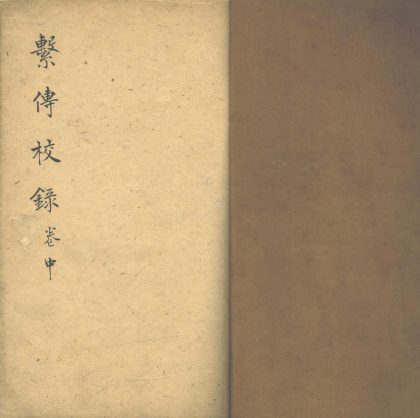 繫傳校録卷中